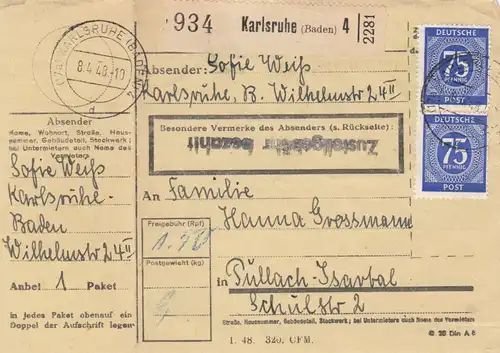 934 Karlsruhe (Baden) 4 2281
DEUTSCHE
75
POST
DEUTSCHE
75
POST
(17a) KARLSRUHE (BADEN) 4
8.4.48.-10
d
Absender: Sofie Weiß
Karlsruhe, B. Wilhelmstr 24 II
Besondere Vermerke des Absenders (s. Rückseite):
Zustellgebühr bezahlt
Absender
Name, Wohnort, Straße, Haus-
nummer, Gebäudeteil, Stockwerk;
bei Untermietern auch Name des
Vermieters
Sofie Weiß
Karlsruhe-
Baden
Wilhelmstr 24 II
Anbei 1 Paket
in jedes Paket obenauf ein
Doppel der Aufschrift legen
An Familie
Hanna Grossmann
Freigebühr (Rpf)
Postgewicht (kg)
in Pullach-Isartal
Schulstr 2
Straße, Hausnummer, Gebäudeteil, Stockwerk; bei Untermietern auch Name des Vermieters
I. 48. 320. CFM.
C 28 Din A 6